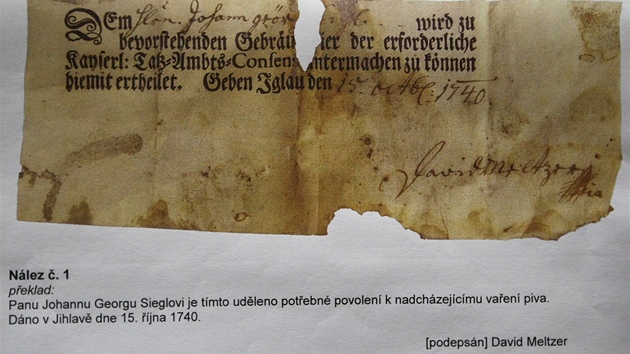 Dem Hön. Johann geör wird zu
bevorstehenden Gebräu ier der erforderliche
Kayserl: Tatz-Ambts-Consens untermachen zu können
hiemit ertheilet. Geben Iglau den 15. octob. 1740.
David Meltzer
Nález č. 1
překlad:
Panu Johannu Georgu Sieglovi je tímto uděleno potřebné povolení k nadcházejícímu vaření piva.
Dáno v Jihlavě dne 15. října 1740.
[podepsán] David Meltzer